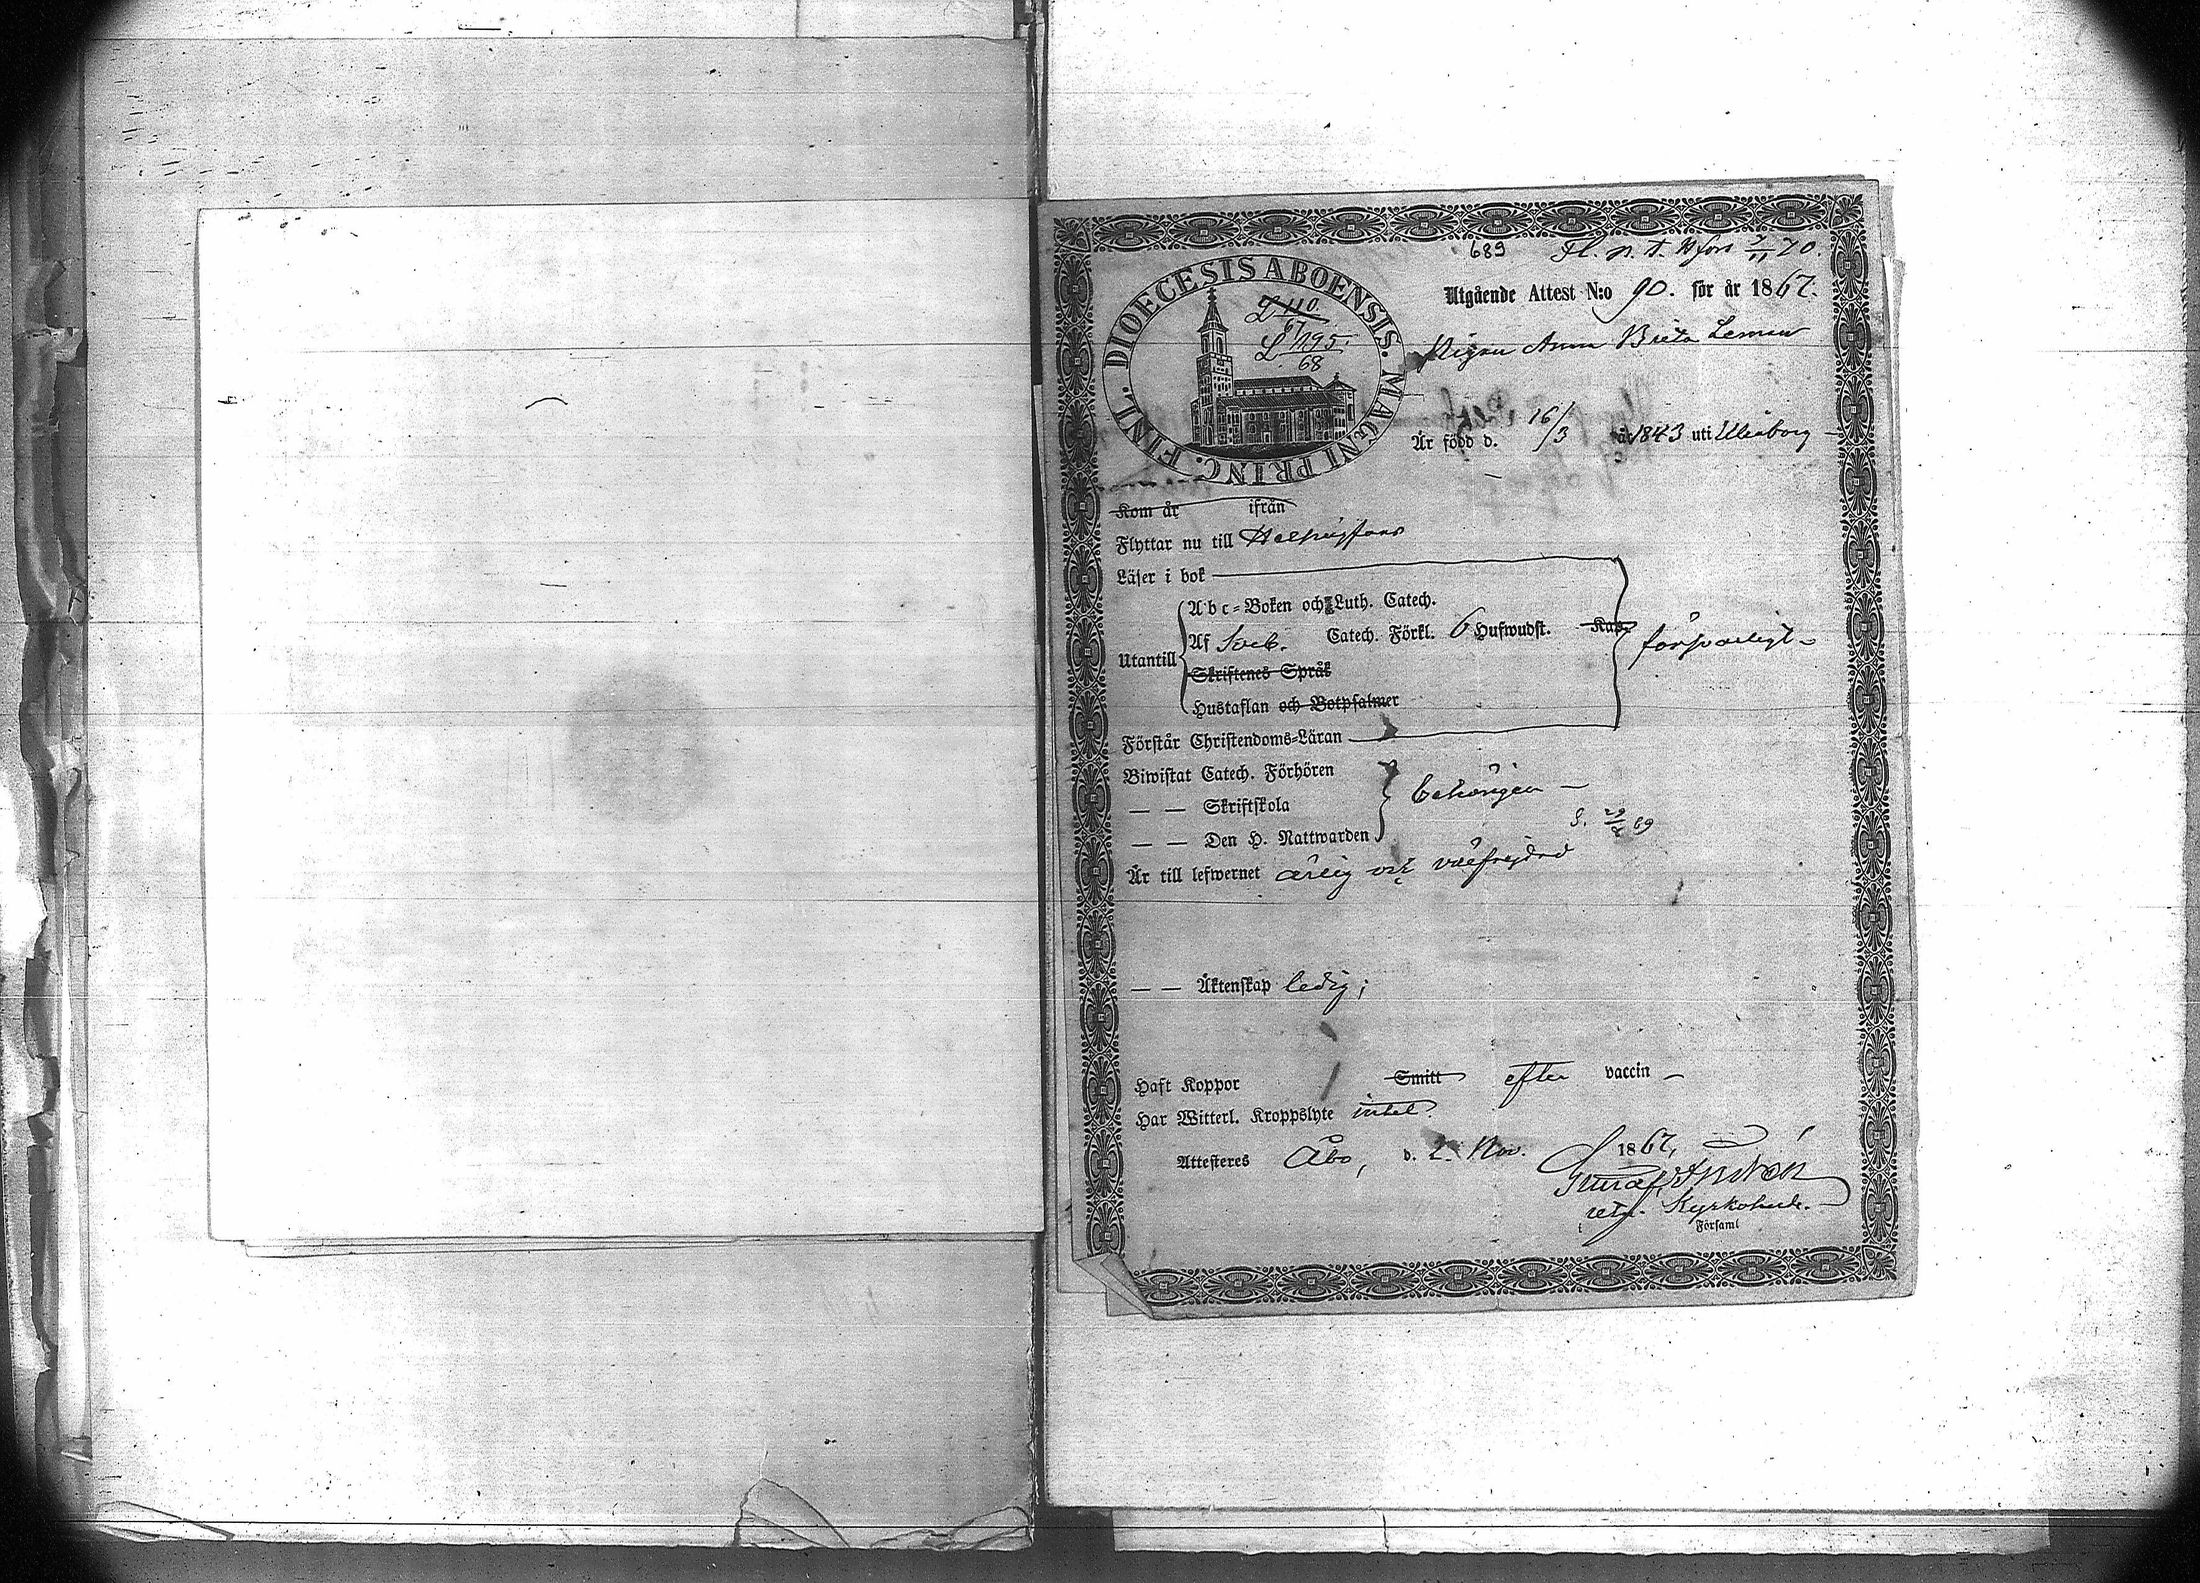 689 Fl. n. t. Hfors 7/11 70.
DIOECESIS ABOENSIS. MAGNI PRINC. FINL.
L 110
67
L 1195.
68
Utgående Attest N:o 90. för år 1867.
Pigan Anna Brita Leman
Är född d. 16/3 år 1843 uti Uleåborg
Kom år ifrån
Flyttar nu till Helsingfors
Läser i bok
Abc-Boken och Luth. Catech.
Utantill Af Sveb. Catech. Förkl. 6 Hufwudst. Kap. försvarligt
Skriftenes Språk
Hustaflan och Botpsalmer
Förstår Christendoms-Läran
Biwistat Catech. Förhören
— — Skriftskola behörigen —
— — Den H. Nattwarden
Är till lefwernet ärlig och välfrejdad
— — Äktenskap ledig;
Haft Koppor Smitt efter vaccin
Har Witterl. Kroppslyte intet.
Attesteres Åbo, d. 2 Nov. 1867,
Gustaf
Kyrkoherde.
Församl